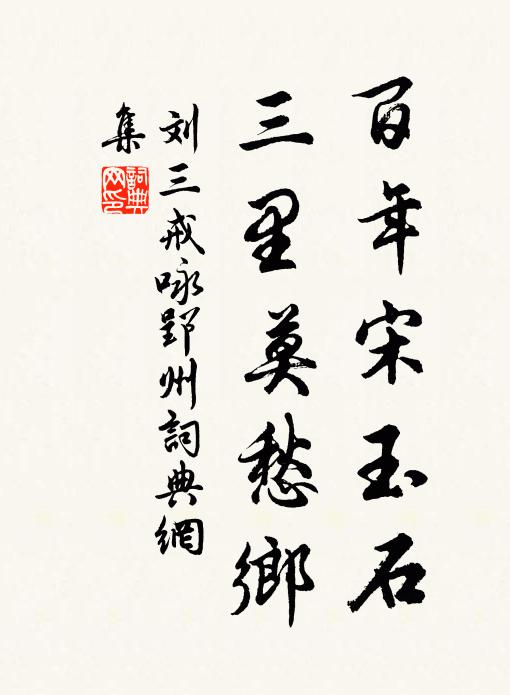 百年宋玉石
三里莫愁鄉
刘三戒咏郢州詞典網
集
詞典
网印